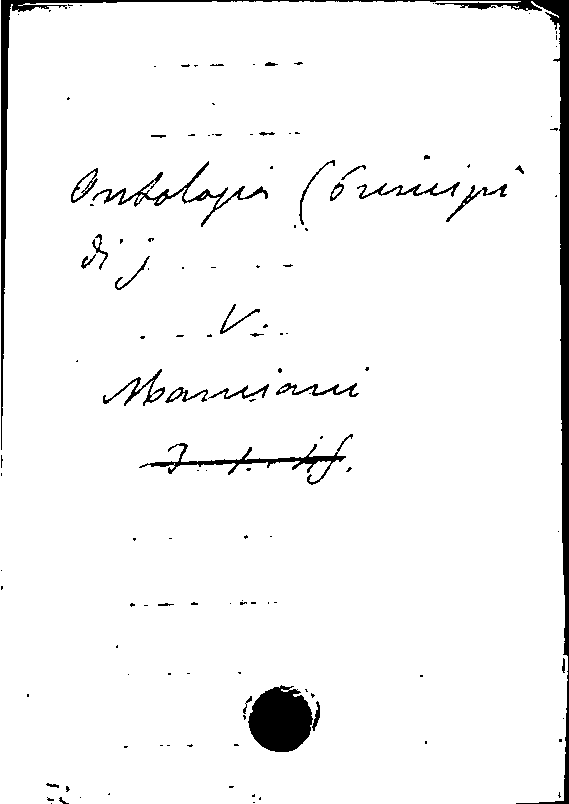 Ontologia (Principi
di)
V.
Mamiani
3. 1. 45.